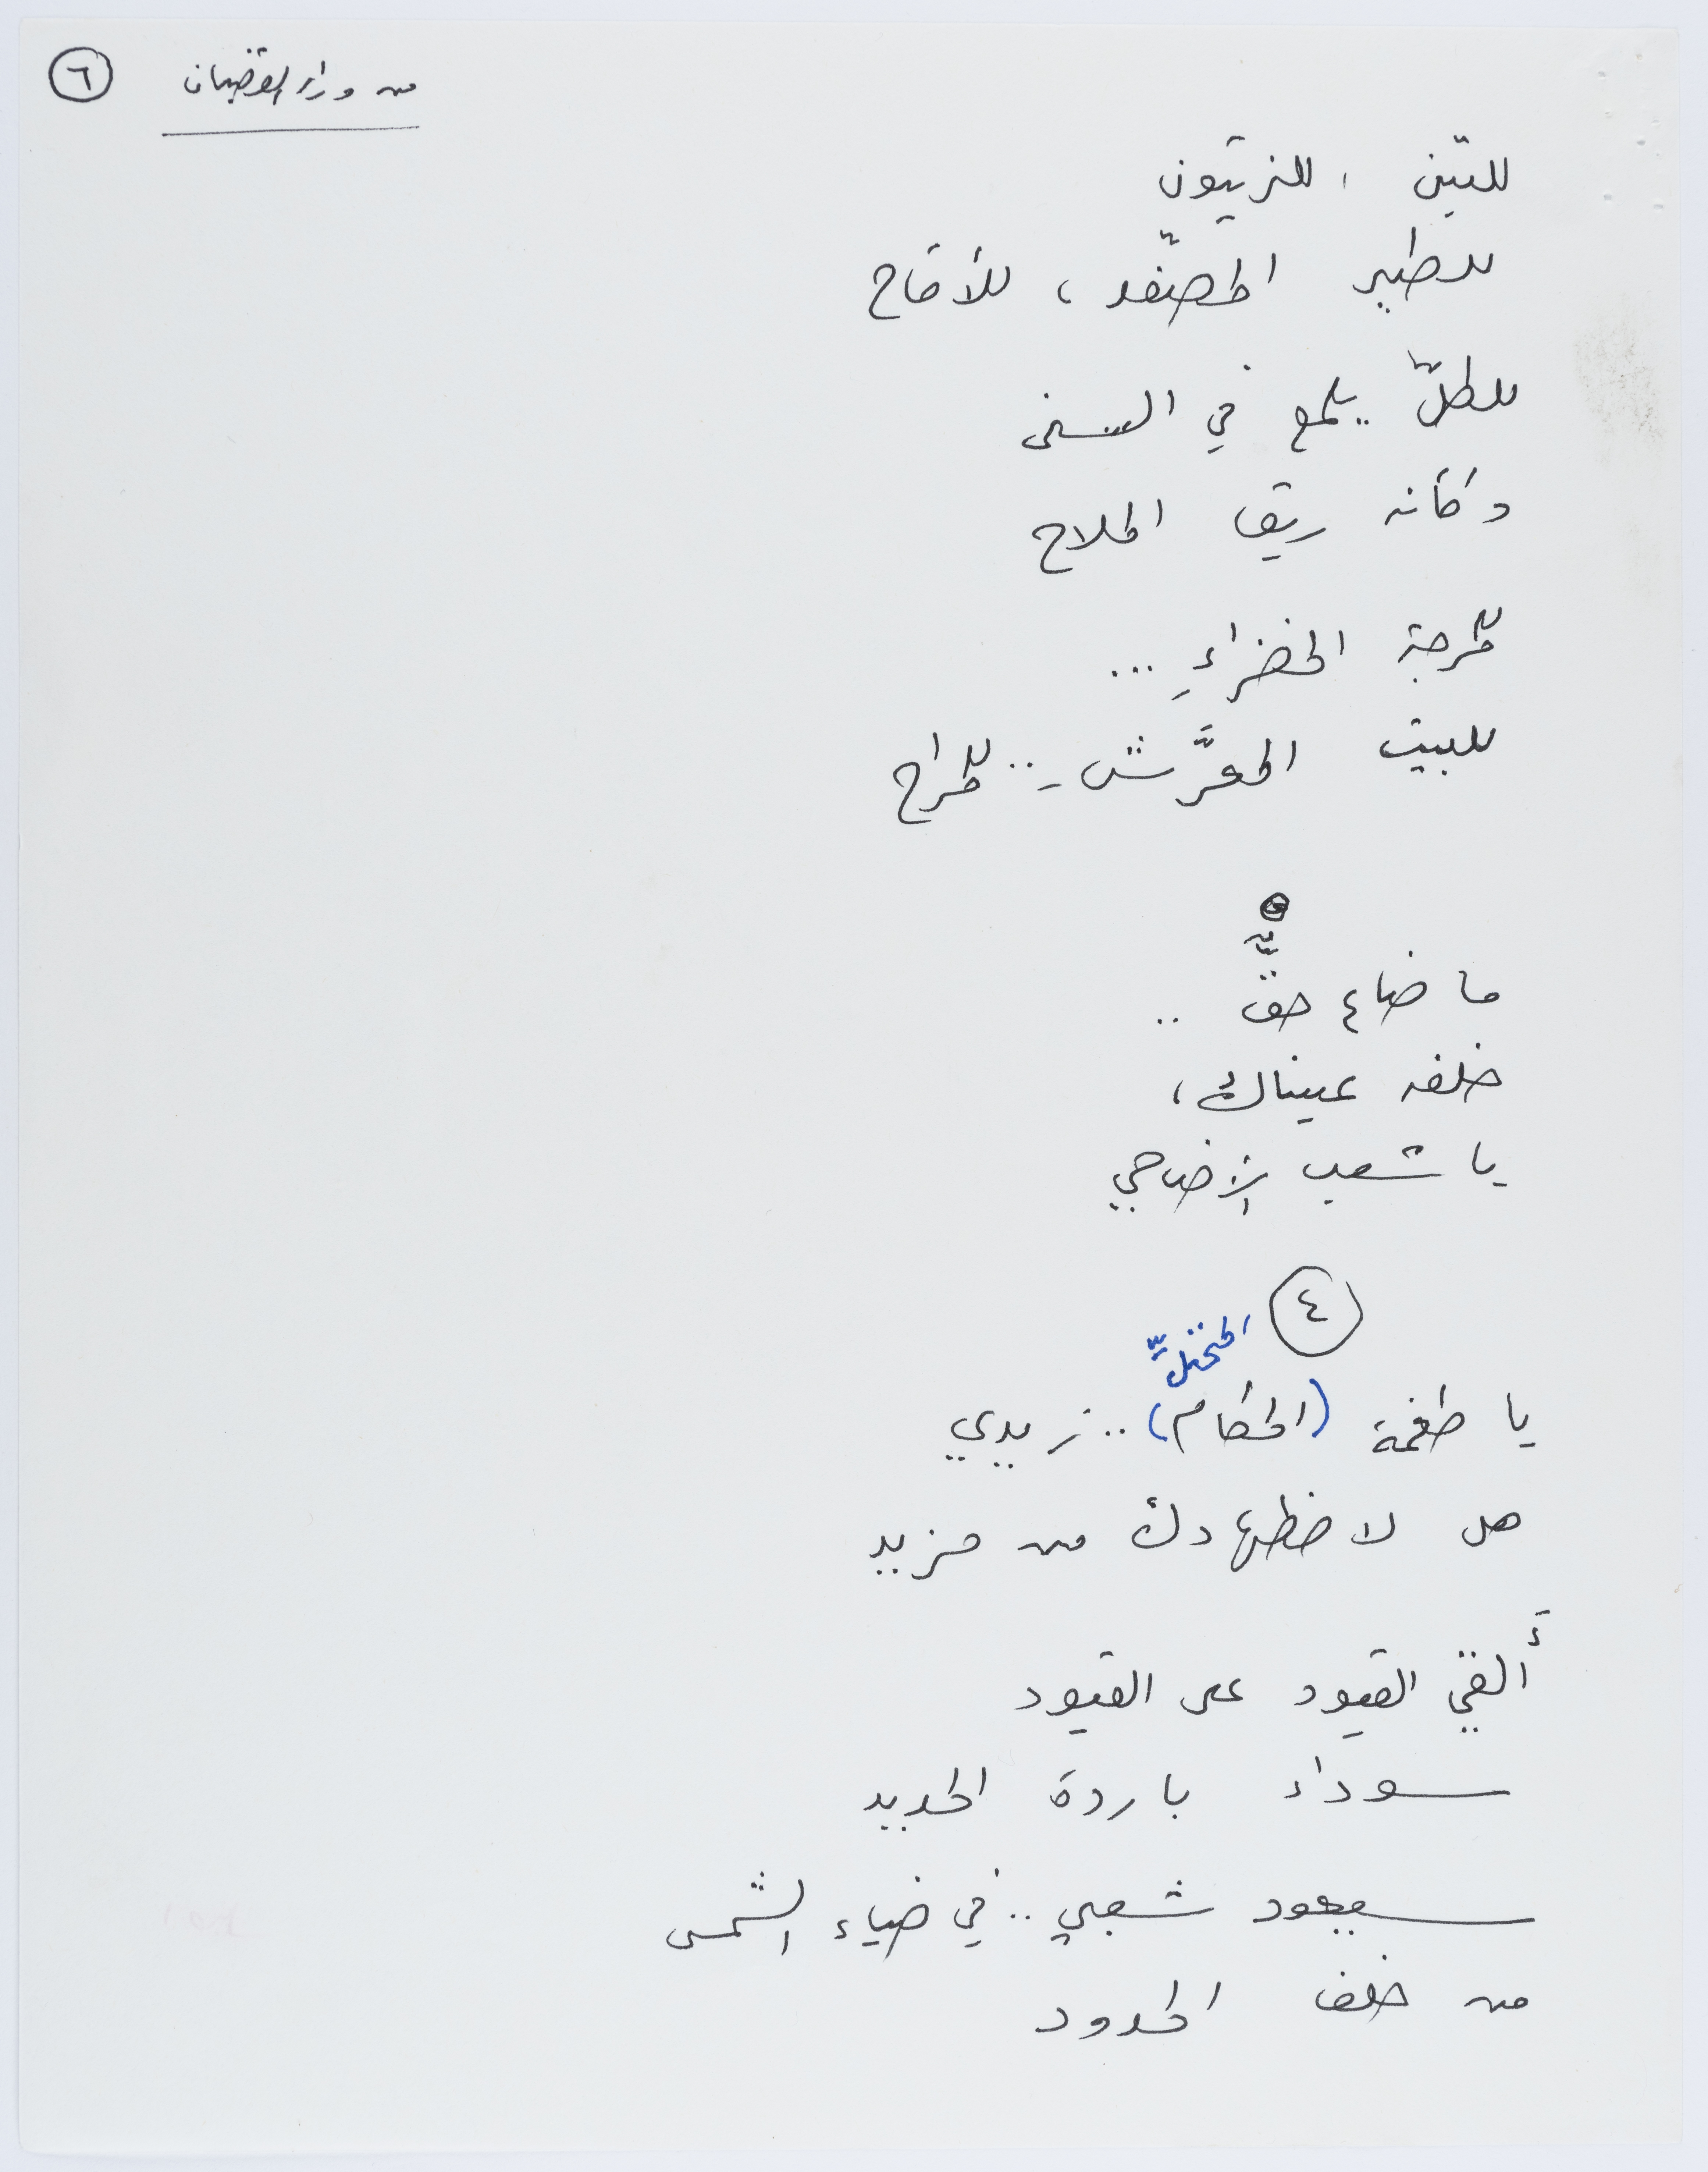 من وراء القضبان ٦
للتين ، للزيتون
للطير المصفّد ، للأقاح
للطلّ يلمع في السنى
وكأنه ريق الملاح
للمرجة الخضراءِ ...
للبيت المعرَّش .. للمراح
ما ضاع حقٌّ ..
خلفه عيناك ،
يا شعب الأضاحي
٤
المحتلِّ
يا طغمة (الحكام) .. زيدي
هل لاضطهادك من مزيد
أَلقي القيود على القيود
سوداء باردة الحديد
سيعود شعبي .. في ضياء الشمس
من خلف الحدود